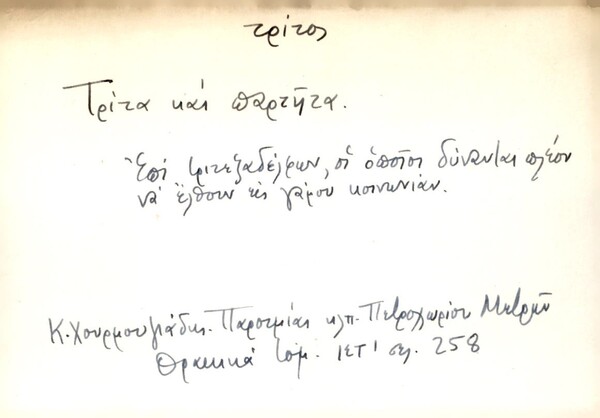 τρίτος
Τρίτα καί παρτῆτα.
Ἐπί τριτεξαδέλφων, οἱ ὁποῖοι δύνανται πλέον
νά ἔλθουν εἰς γάμου κοινωνίαν.
Κ. Χουρμουζιάδης. Παροιμίαι κλπ. Πετροχωρίου Μετρῶν
Θρακικά τομ. ΙΣΤ' σελ. 258